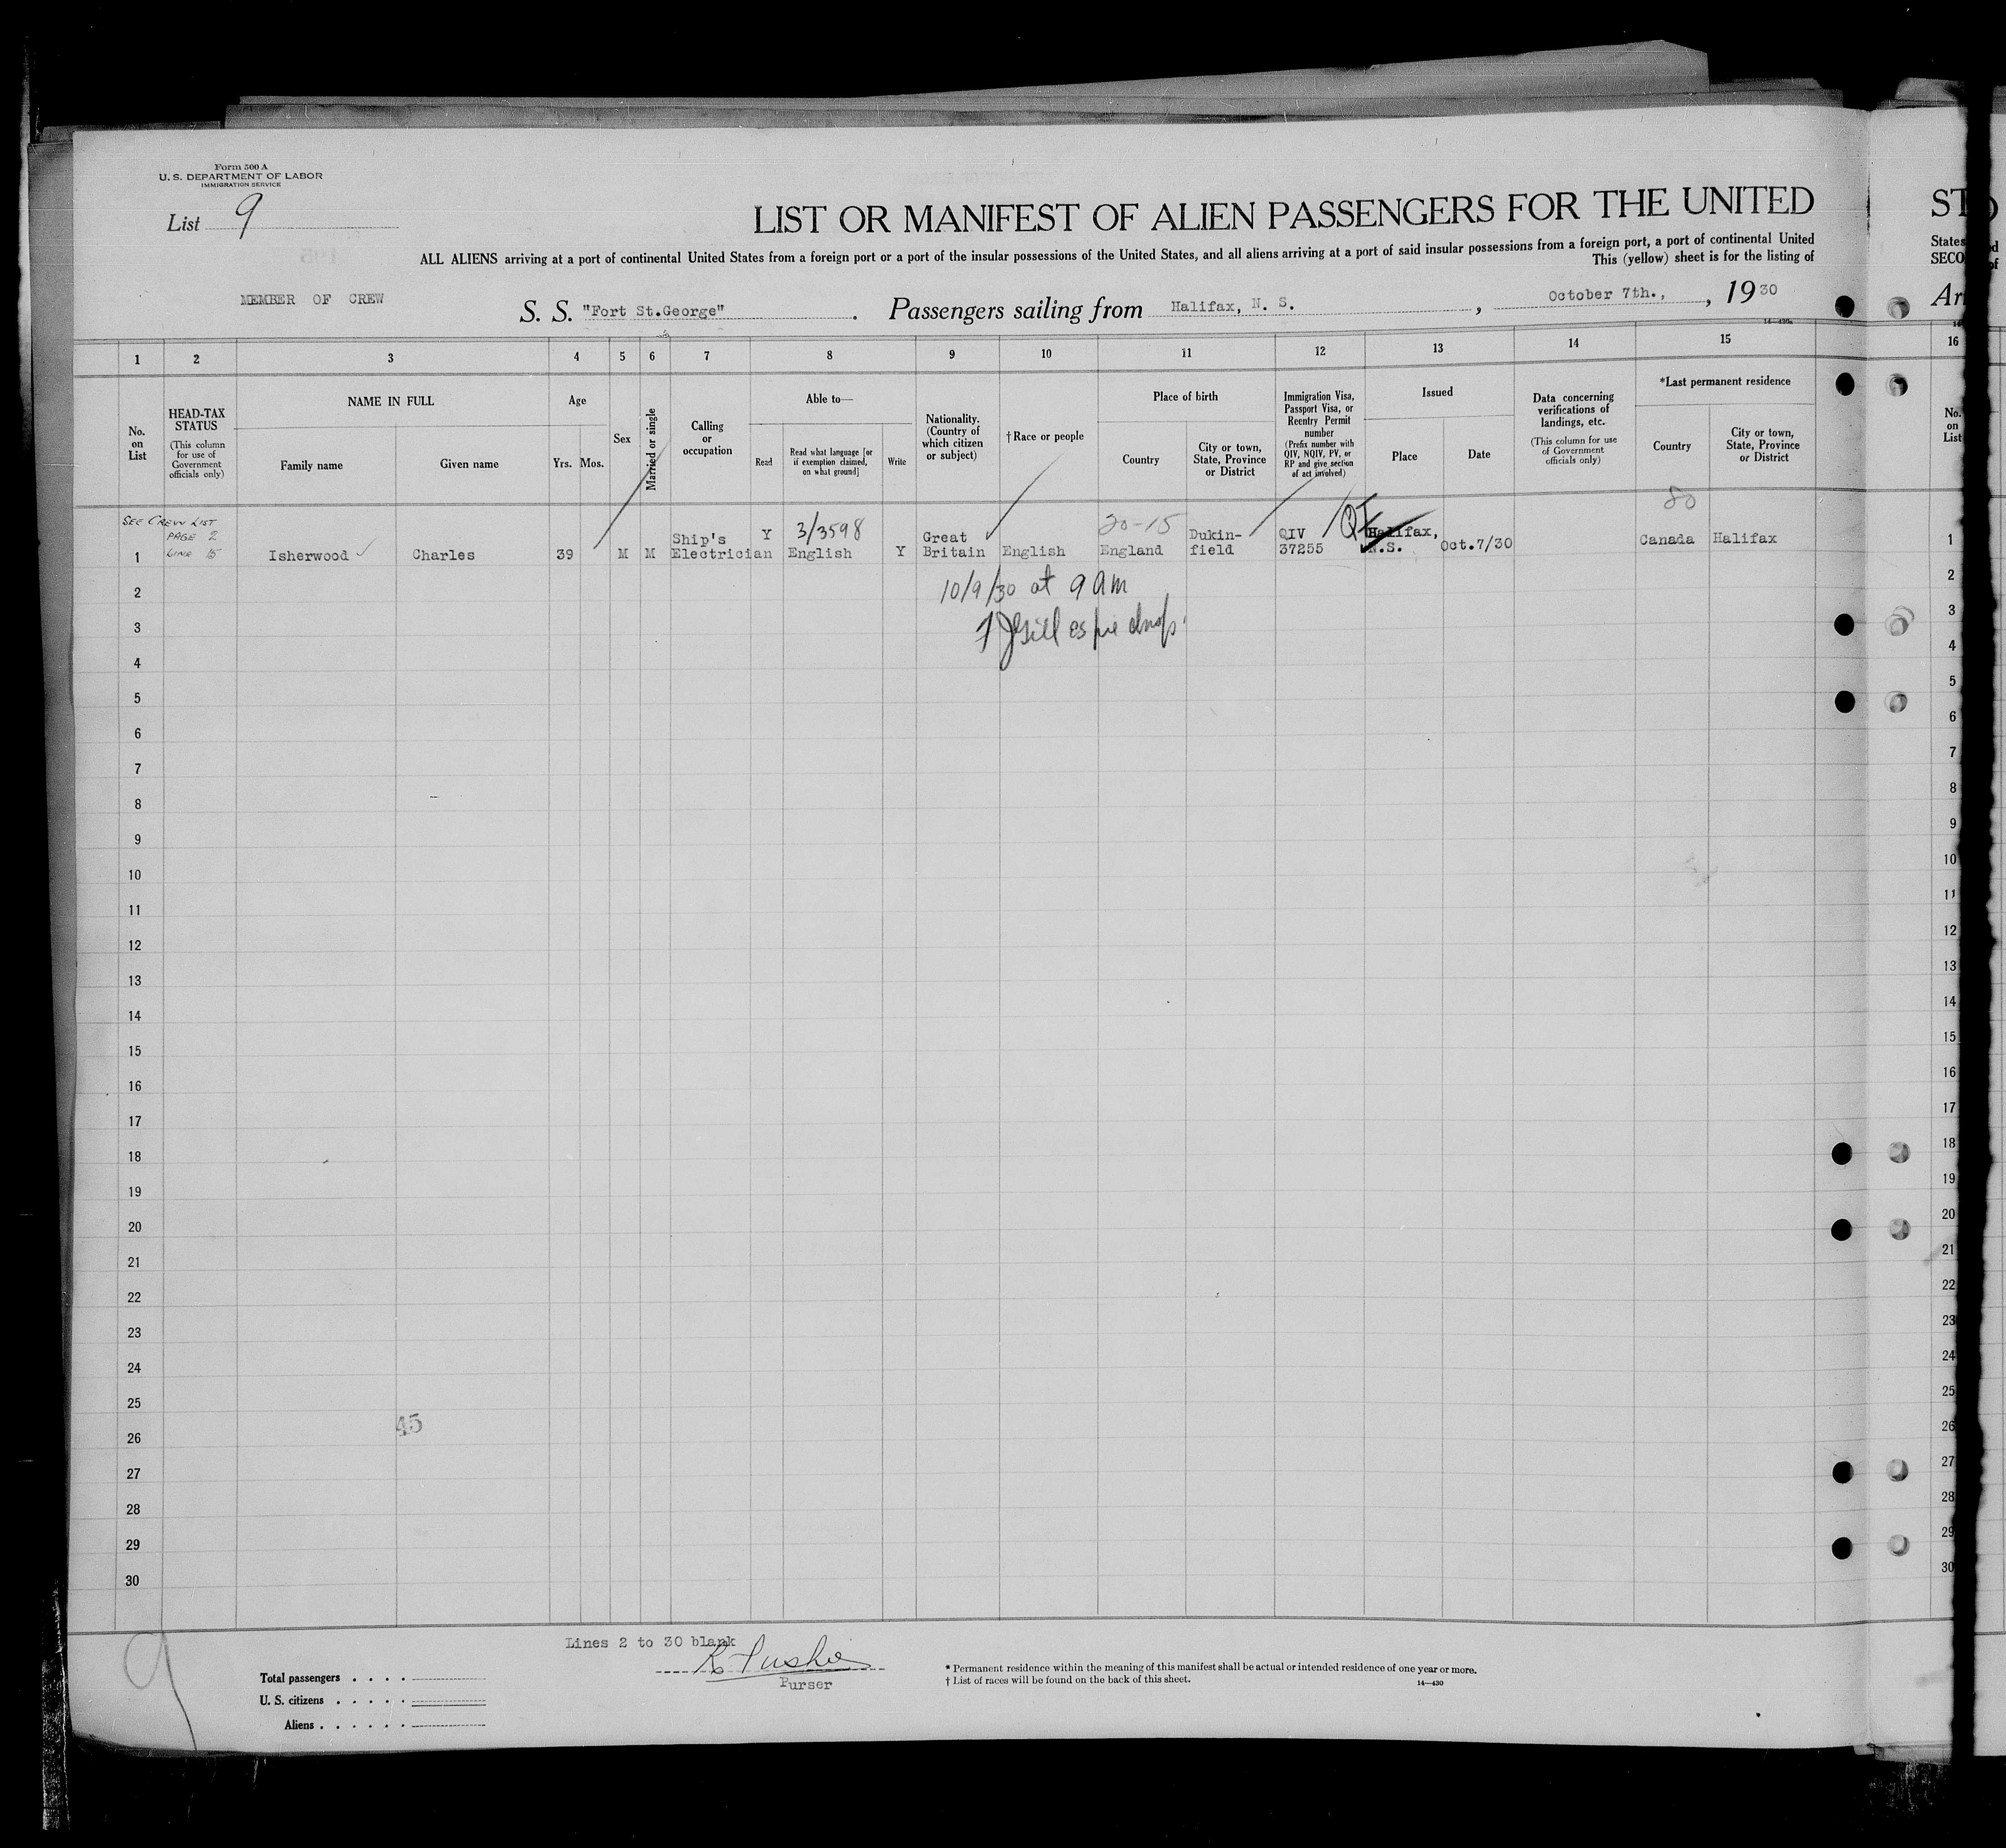 Form 500 A
U. S. DEPARTMENT OF LABOR
IMMIGRATION SERVICE
List 9
LIST OR MANIFEST OF ALIEN PASSENGERS FOR THE UNITED
ALL ALIENS arriving at a port of continental United States from a foreign port or a port of the insular possessions of the United States, and all aliens arriving at a port of said insular possessions from a foreign port, a port of continental United
This (yellow) sheet is for the listing of
MEMBER OF CREW
S. S. "Fort St.George" . Passengers sailing from Halifax, N. S. , October 7th., , 1930
14—430a
1 2 3 4 5 6 7 8 9 10 11 12 13 14 15 16
No. on List
HEAD-TAX STATUS
(This column for use of Government officials only)
NAME IN FULL
Family name
Given name
Age
Yrs. Mos.
Sex
Married or single
Calling or occupation
Able to—
Read
Read what language [or if exemption claimed, on what ground]
Write
Nationality. (Country of which citizen or subject)
†Race or people
Place of birth
Country
City or town, State, Province or District
Immigration Visa, Passport Visa, or Reentry Permit number
(Prefix number with QIV, NQIV, PV, or RP and give section of act involved)
Issued
Place
Date
Data concerning verifications of landings, etc.
(This column for use of Government officials only)
*Last permanent residence
Country
City or town, State, Province or District
No. on List
SEE CREW LIST
PAGE 2
LINE 15
80
3/3598
20-15
1 Isherwood Charles 39 M M Ship's Electrician Y English Y Great Britain English England Dukin-field QIV 37255 Halifax, N.S. Oct.7/30 Canada Halifax 1
10/9/30 at 9 am
Gillespie
2 2
3 3
4 4
5 5
6 6
7 7
8 8
9 9
10 10
11 11
12 12
13 13
14 14
15 15
16 16
17 17
18 18
19 19
20 20
21 21
22 22
23 23
24 24
25 25
45
26 26
27 27
28 28
29 29
30 30
9
Lines 2 to 30 blank
Purser
Total passengers . . . .
U. S. citizens . . . . .
Aliens . . . . . .
* Permanent residence within the meaning of this manifest shall be actual or intended residence of one year or more.
† List of races will be found on the back of this sheet.
14—430